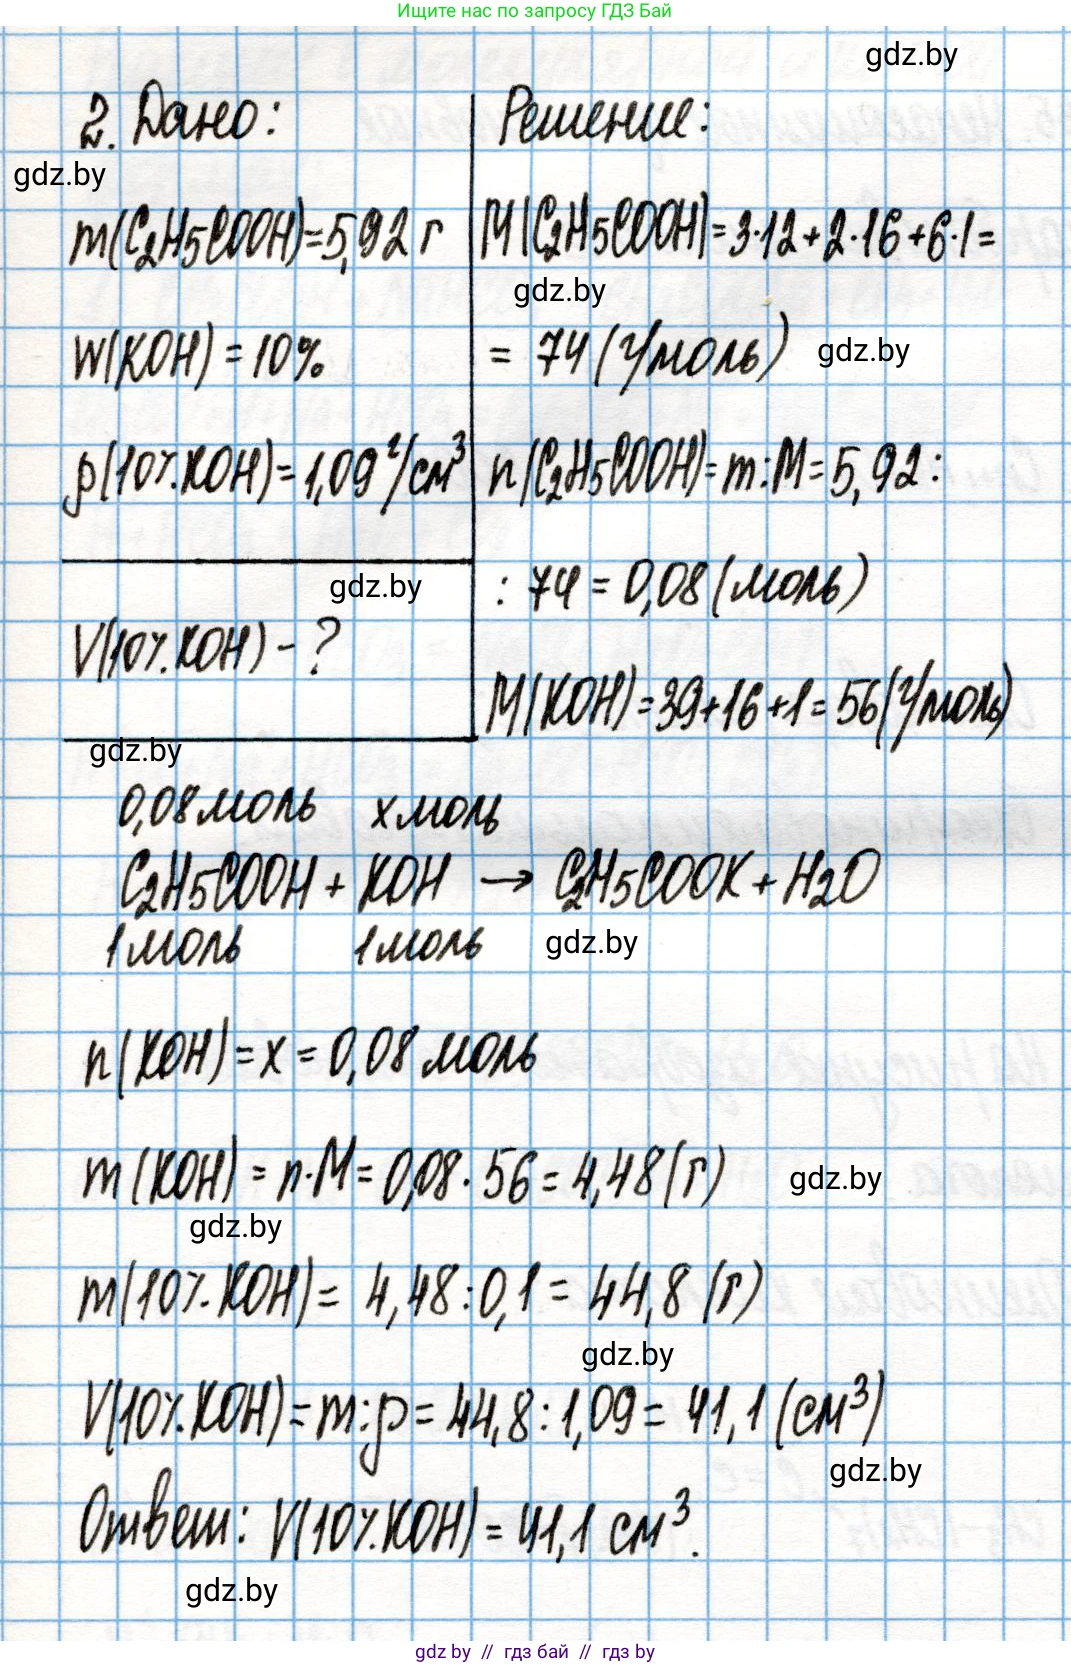 Ищите нас по запросу ГДЗ Бай
gdz.by
2. Дано:
Решение:
gdz.by
m(C2H5COOH)=5,92 г
M(C2H5COOH)=3·12+2·16+6·1=
gdz.by
w(KOH) = 10%
= 74 (г/моль)
gdz.by
ρ(10%.KOH)=1,09 г/см³
n(C2H5COOH)=m:M=5,92:
gdz.by
: 74 = 0,08 (моль)
V(10%.KOH) - ?
M(KOH)=39+16+1=56(г/моль)
gdz.by
0,08 моль x моль
C2H5COOH + KOH → C2H5COOK + H2O
1 моль 1 моль
gdz.by
n(KOH) = x = 0,08 моль
m(KOH) = n·M = 0,08·56 = 4,48 (г)
gdz.by
gdz.by
m(10%.KOH) = 4,48:0,1 = 44,8 (г)
gdz.by
V(10%.KOH)=m:ρ = 44,8:1,09 = 41,1 (см³)
gdz.by
Ответ: V(10%.KOH) = 41,1 см³.
gdz.by
gdz by // гдз бай // gdz by